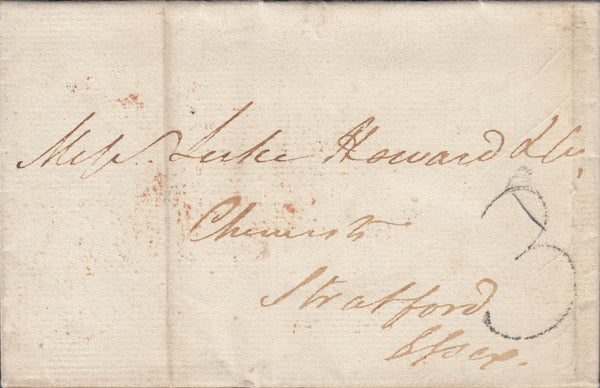 Messrs. Luke Howard & Co.
Chemists
Stratford
Essex.
3